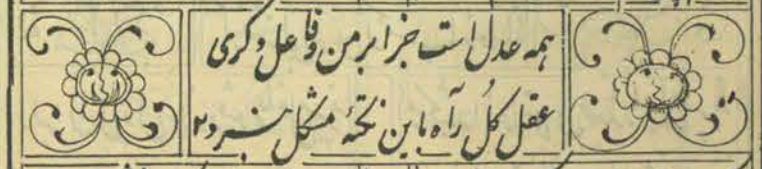 همه عدل است جزا بر من و فاعل دگری
عقل کل راه باین نکتهٔ مشکل نبرد